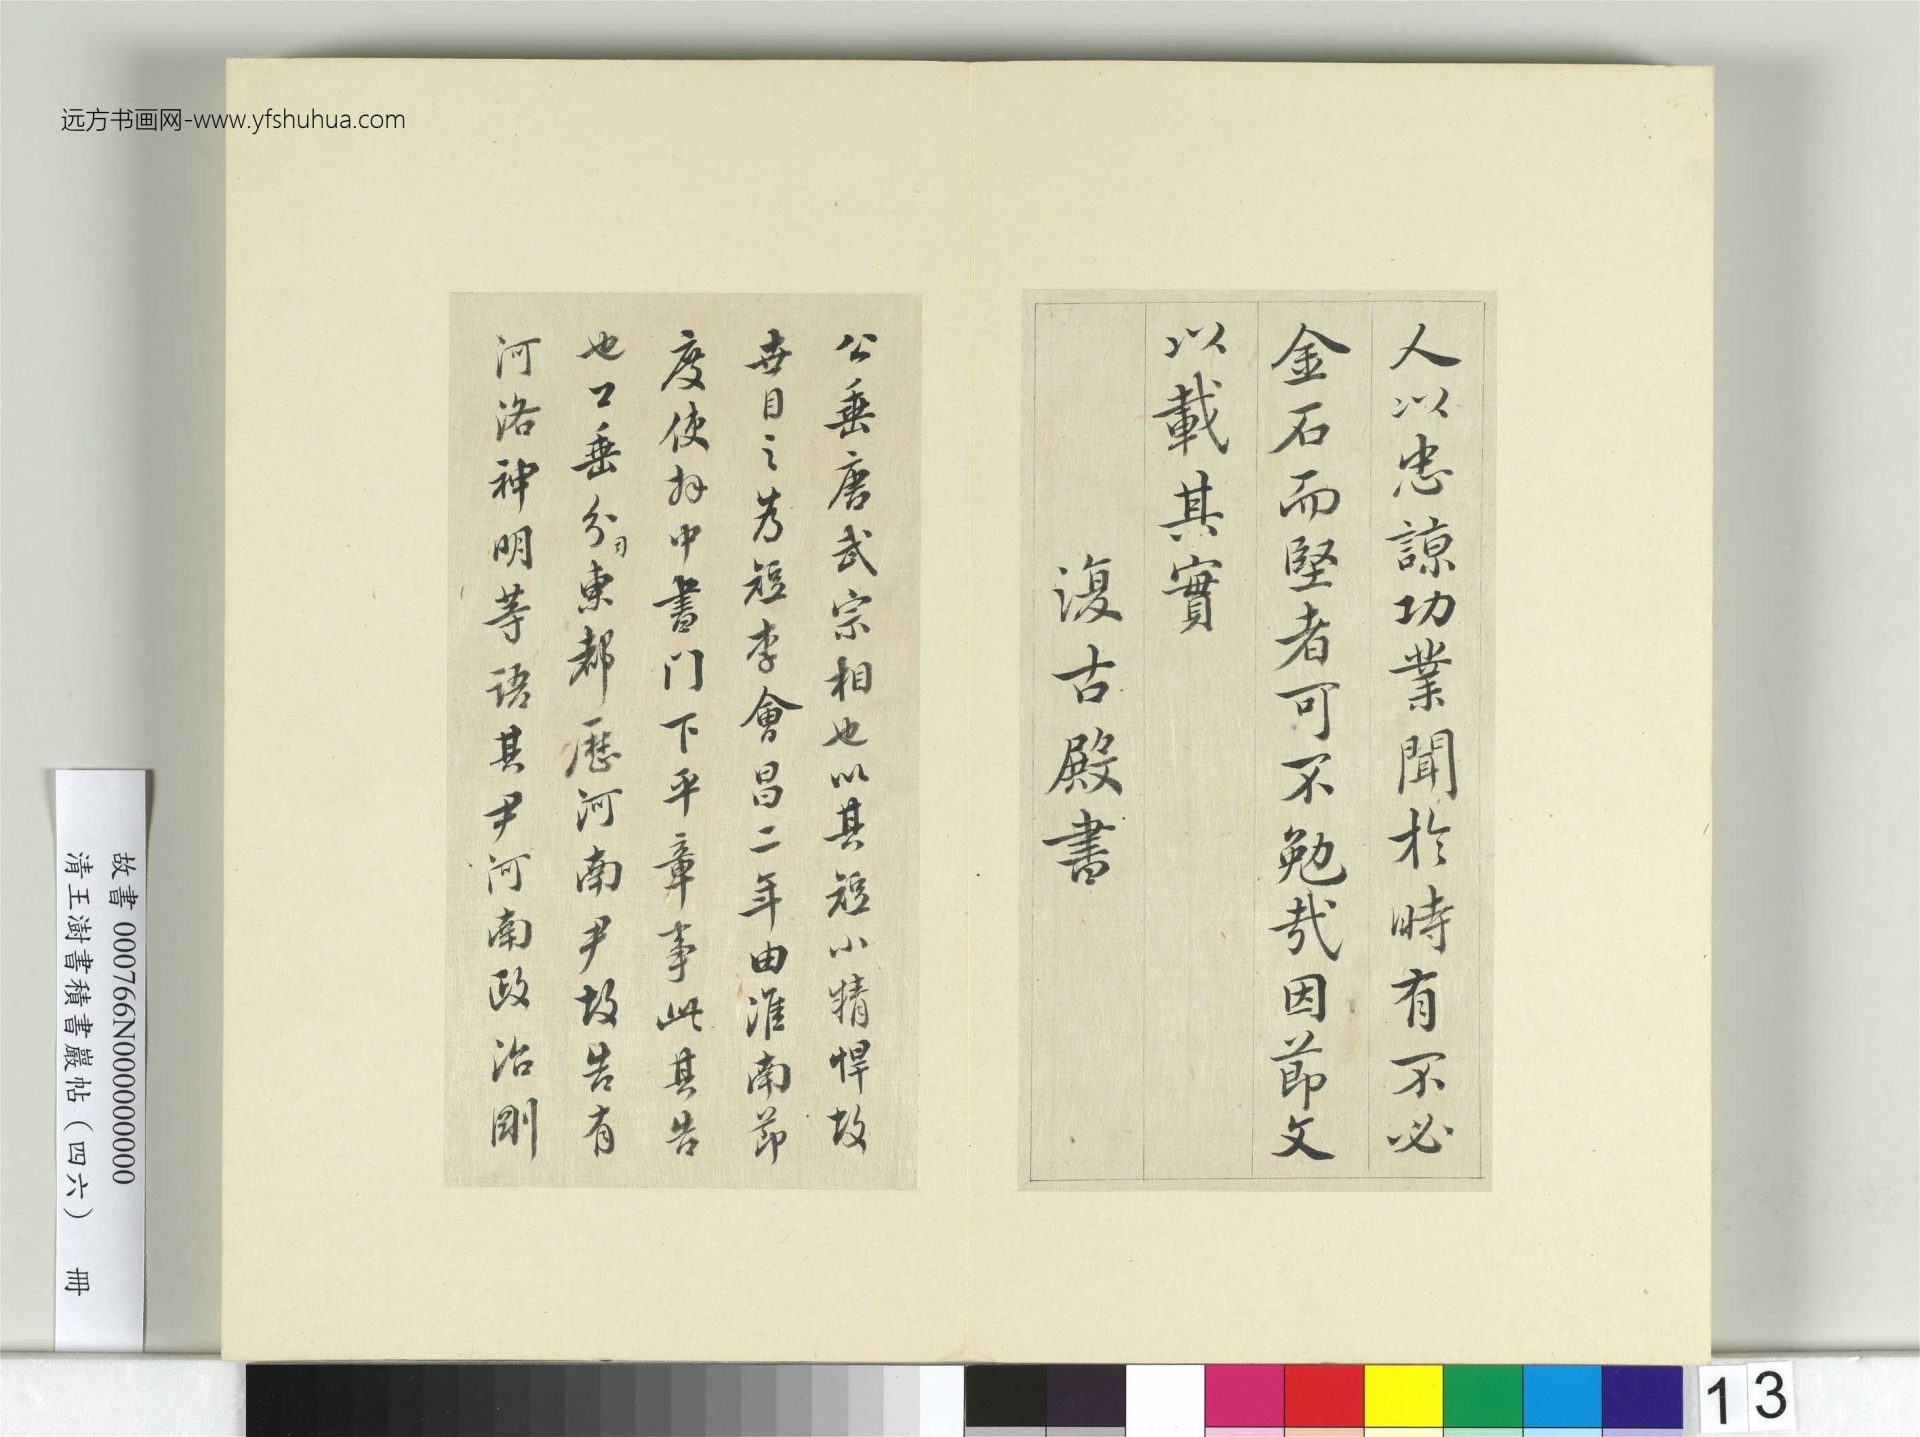 远方书画网-www.yfshuhua.com
人以忠諒功業聞於時有不必
金石而堅者可不勉哉因節文
以載其實
復古殿書
公垂唐武宗相也以其短小精悍故
世目之為短李會昌二年由淮南節
度使拜中書门下平章事此其告
也公垂分司東都歷河南尹故告有
河洛神明等語其尹河南政治剛
故書 000766N000000000
清王澍書積書巖帖（四六） 冊
13